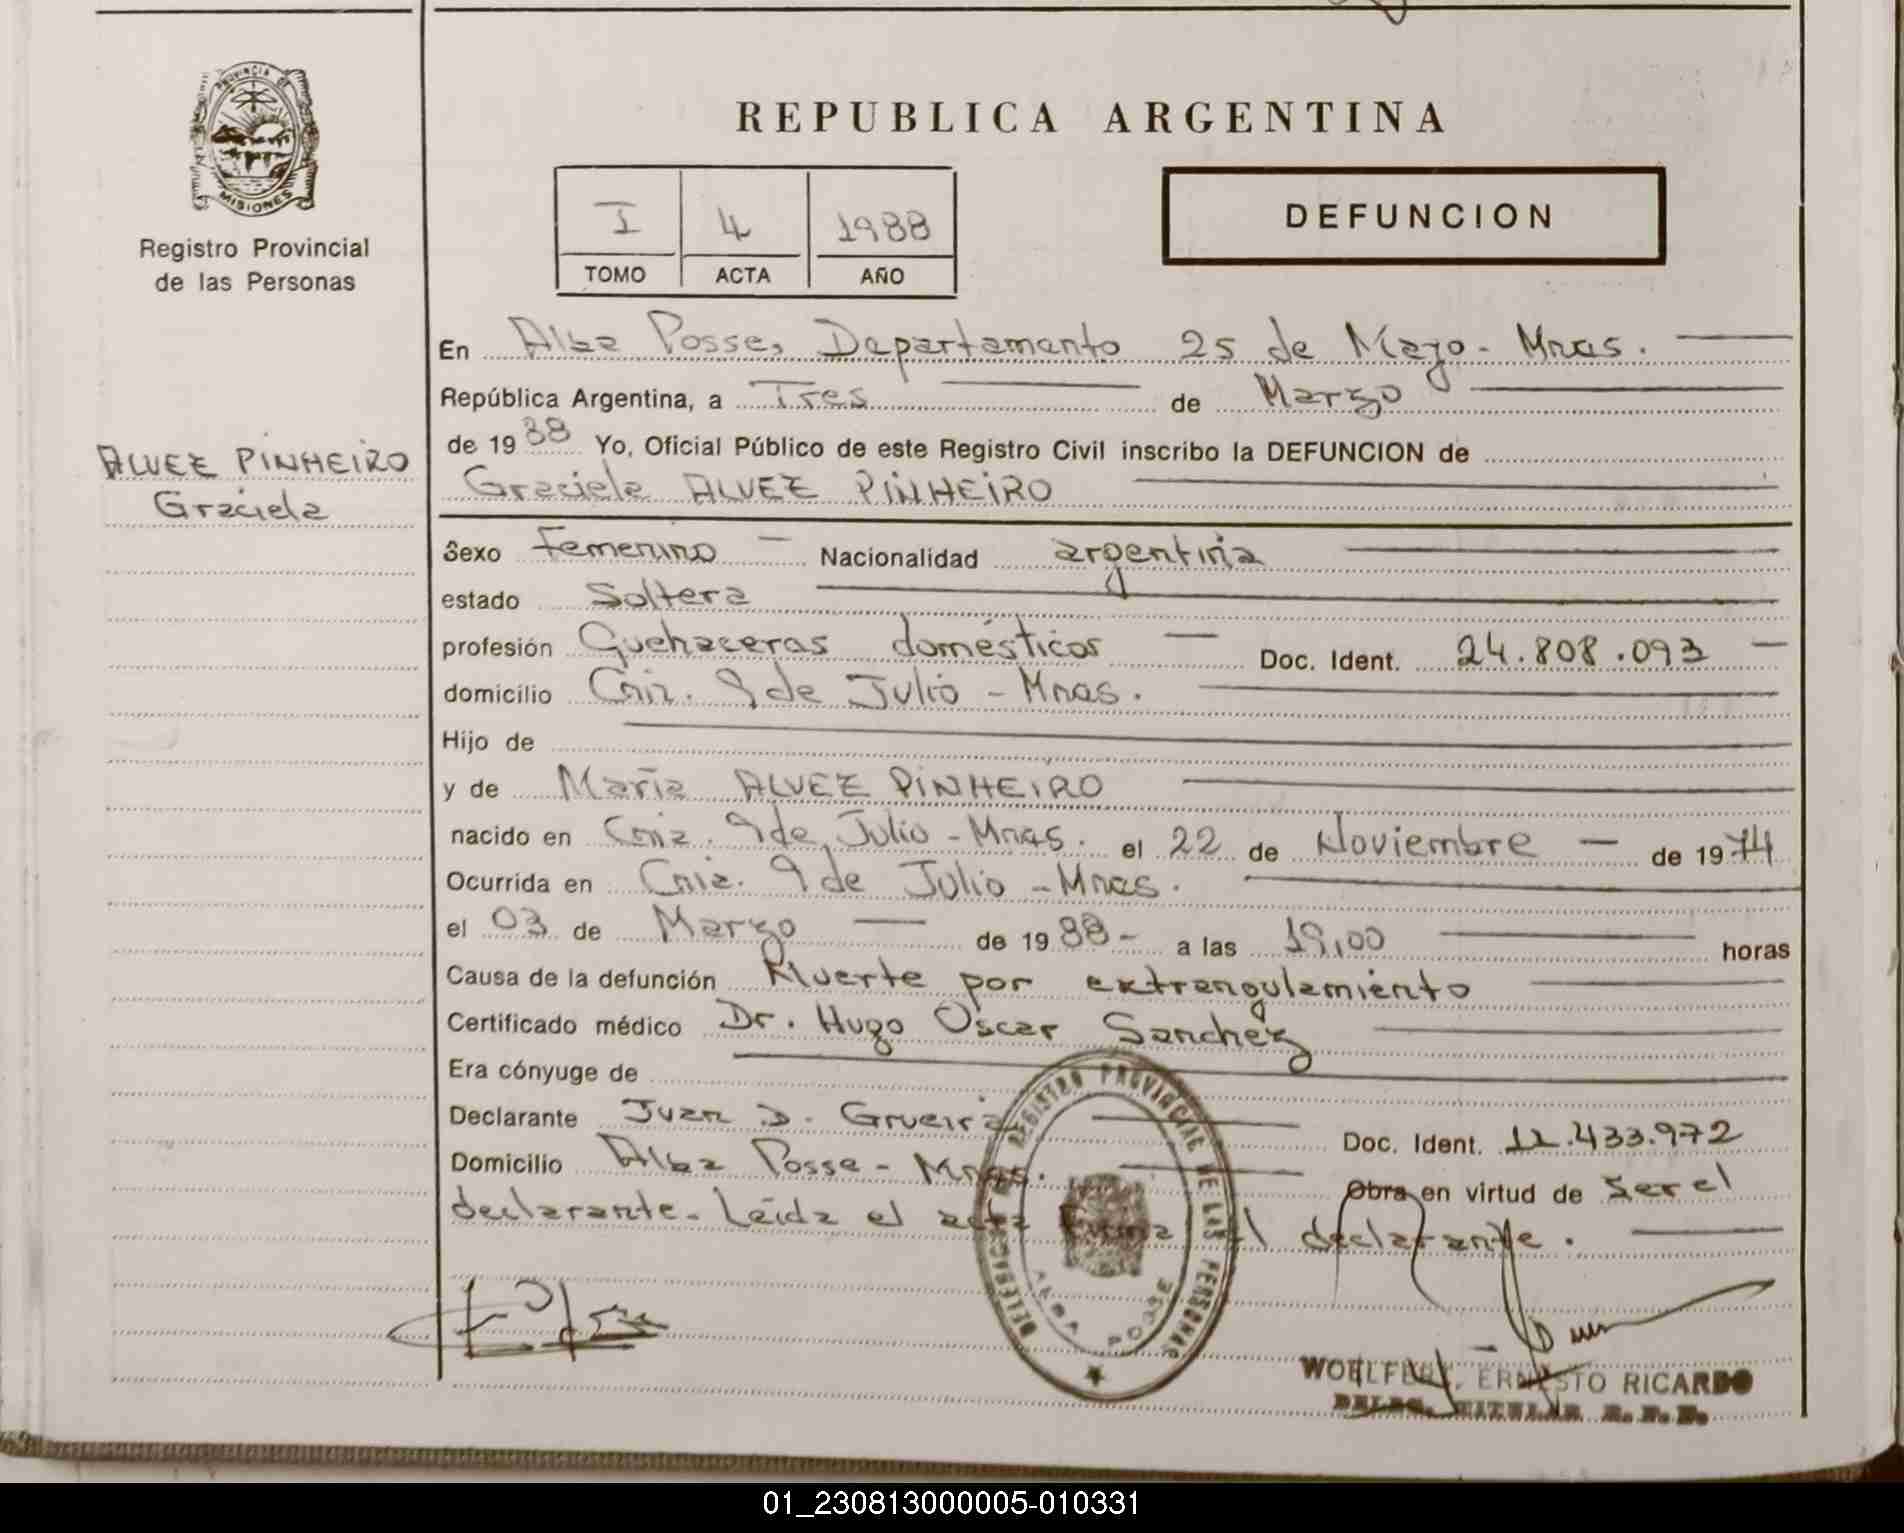 PROVINCIA DE
MISIONES
Registro Provincial
de las Personas
ALVEZ PINHEIRO
Graciela
REPUBLICA ARGENTINA
I 4 1988
TOMO ACTA AÑO
DEFUNCION
En Alba Posse, Departamento 25 de Mayo - Mnes.
República Argentina, a Tres de Marzo
de 1988 Yo, Oficial Público de este Registro Civil inscribo la DEFUNCION de
Graciela ALVEZ PINHEIRO
Sexo Femenino Nacionalidad argentina
estado Soltera
profesión Quehaceres domésticos Doc. Ident. 24.808.093
domicilio Cnia. 9 de Julio - Mnes.
Hijo de
y de María ALVEZ PINHEIRO
nacido en Cnia. 9 de Julio - Mnes. el 22 de Noviembre de 1974
Ocurrida en Cnia. 9 de Julio - Mnes.
el 03 de Marzo de 1988 - a las 19,00 horas
Causa de la defunción Muerte por extrangulamiento
Certificado médico Dr. Hugo Oscar Sanchez
Era cónyuge de
Declarante Juan D. Grueira Doc. Ident. 11.433.972
Domicilio Alba Posse - Mnes. Obra en virtud de Ser el
declarante - Leída el acta Firma el declarante.
DELEGACION REGISTRO PROVINCIAL DE LAS PERSONAS
ALBA POSSE
ERNESTO RICARDO
DELEG. TITULAR R. P. P.
01_230813000005-010331